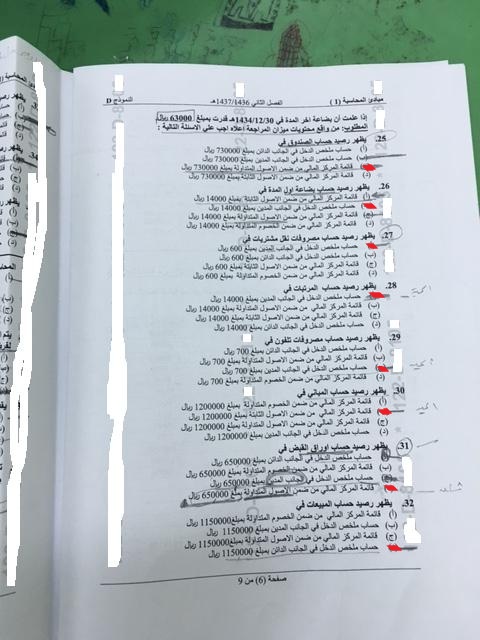 مبادئ المحاسبة (1) الفصل الثاني 1437/1436هـ النموذج D
إذا علمت أن بضاعة اخر المدة في 1434/12/30هـ قدرت بمبلغ 63000 ريال
المطلوب: من واقع محتويات ميزان المراجعة اعلاه اجب على الاسئلة التالية :
25. يظهر رصيد حساب الصندوق في
أ) حساب ملخص الدخل في الجانب الدائن بمبلغ 730000 ريال
حساب ملخص الدخل في الجانب المدين بمبلغ 730000 ريال
قائمة المركز المالي من ضمن الاصول المتداولة بمبلغ 730000 ريال
د) قائمة المركز المالي من ضمن الاصول الثابتة بمبلغ 730000 ريال
26. يظهر رصيد حساب بضاعة اول المدة في
أ) قائمة المركز المالي من ضمن الاصول الثابتة بمبلغ 14000 ريال
حساب ملخص الدخل في الجانب المدين بمبلغ 14000 ريال
ج) قائمة المركز المالي من ضمن الاصول المتداولة بمبلغ 14000 ريال
د) قائمة المركز المالي من ضمن الخصوم المتداولة بمبلغ 14000 ريال
27. يظهر رصيد حساب مصروفات نقل مشتريات في
حساب ملخص الدخل في الجانب المدين بمبلغ 600 ريال
ب) حساب ملخص الدخل في الجانب الدائن بمبلغ 600 ريال
ج) قائمة المركز المالي من ضمن الاصول الثابتة بمبلغ 600 ريال
د) قائمة المركز المالي من ضمن الخصوم المتداولة بمبلغ 600 ريال
28. يظهر رصيد حساب المرتبات في
حساب ملخص الدخل في الجانب المدين بمبلغ 14000 ريال
ب) قائمة المركز المالي من ضمن الاصول المتداولة بمبلغ 14000 ريال
ج) قائمة المركز المالي من ضمن الاصول الثابتة بمبلغ 14000 ريال
د) حساب ملخص الدخل في الجانب الدائن بمبلغ 14000 ريال
29. يظهر رصيد حساب مصروفات تلفون في
أ) حساب ملخص الدخل في الجانب الدائن بمبلغ 700 ريال
ب) قائمة المركز المالي من ضمن الاصول المتداولة بمبلغ 700 ريال
حساب ملخص الدخل في الجانب المدين بمبلغ 700 ريال
د) قائمة المركز المالي من ضمن الخصوم المتداولة بمبلغ 700 ريال
30. يظهر رصيد حساب المباني في
أ) قائمة المركز المالي من ضمن الخصوم المتداولة بمبلغ 1200000 ريال
قائمة المركز المالي من ضمن الاصول الثابتة بمبلغ 1200000 ريال
ج) قائمة المركز المالي من ضمن الاصول المتداولة بمبلغ 1200000 ريال
د) حساب ملخص الدخل في الجانب الدائن بمبلغ 1200000 ريال
31. يظهر رصيد حساب اوراق القبض في
حساب ملخص الدخل في الجانب الدائن بمبلغ 650000 ريال
ب) قائمة المركز المالي من ضمن الخصوم المتداولة بمبلغ 650000 ريال
حساب ملخص الدخل في الجانب المدين بمبلغ 650000 ريال
قائمة المركز المالي من ضمن الاصول المتداولة بمبلغ 650000 ريال
32. يظهر رصيد حساب المبيعات في
أ) قائمة المركز المالي من ضمن الخصوم المتداولة بمبلغ 1150000 ريال
ب) حساب ملخص الدخل في الجانب المدين بمبلغ 1150000 ريال
ج) قائمة المركز المالي من ضمن الاصول المتداولة بمبلغ 1150000 ريال
حساب ملخص الدخل في الجانب الدائن بمبلغ 1150000 ريال
صفحة (6) من 9